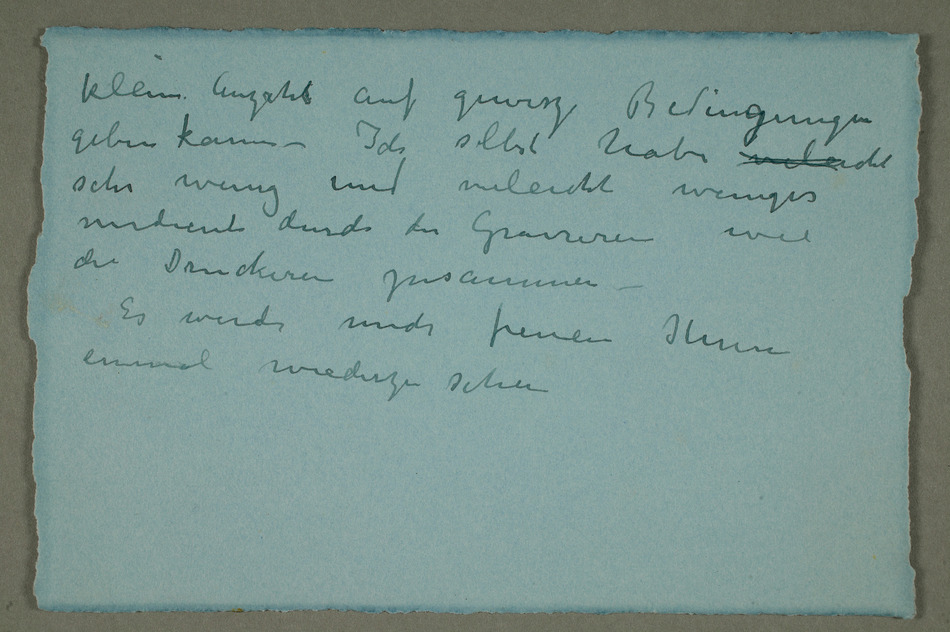 klein Anzahl auf gewisze Bedingungen
geben kann – Ich selbst habe vieleicht
sehr wenig und vieleicht weniges
verdient durch die Gravieren wie
die Druckeren zusammen –
Es wurde mich freuen Ihnen
einmal wiederzu sehen